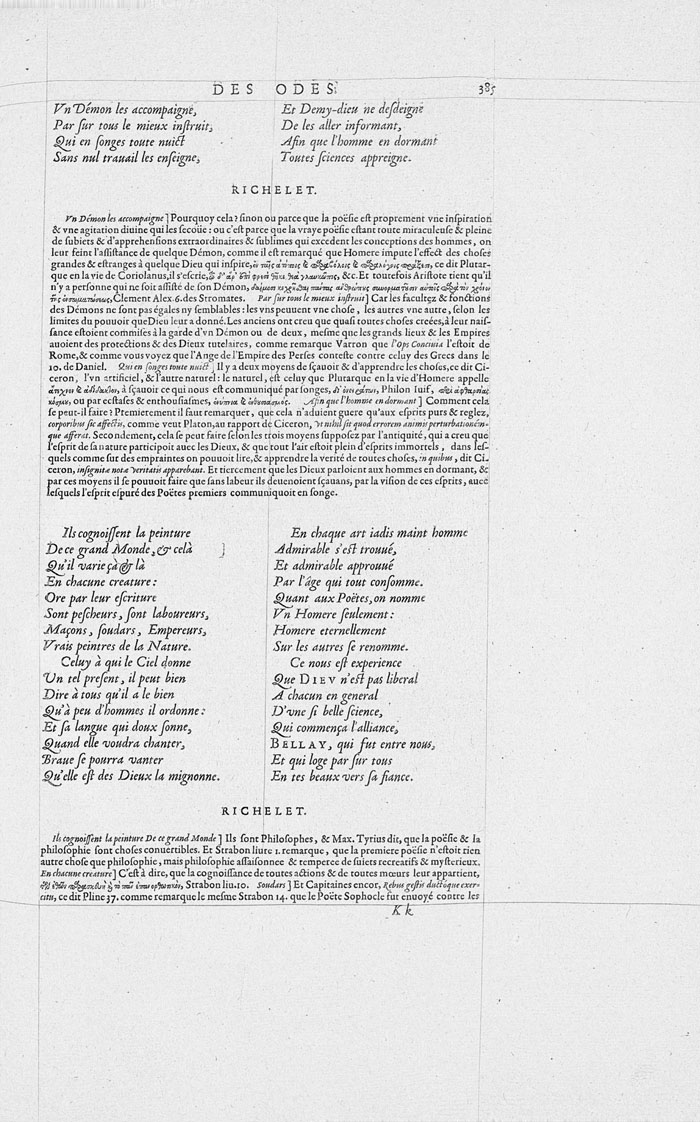 DES ODES.
385
Vn Démon les accompaigne,
Par ſur tous le mieux inſtruit,
Qui en ſonges toute nuict
Sans nul trauail les enſeigne,
Et Demy-dieu ne deſdeigne
De les aller informant,
Afin que l'homme en dormant
Toutes ſciences appreigne.
RICHELET.
Vn Démon les accompaigne] Pourquoy cela? ſinon ou parce que la poëſie eſt proprement vne inſpiration
& vne agitation diuine qui les ſecoüe: ou c'eſt parce que la vraye poëſie eſtant toute miraculeuſe & pleine
de ſubiets & d'apprehenſions extraordinaires & ſublimes qui excedent les conceptions des hommes, on
leur feint l'aſſiſtance de quelque Démon, comme il eſt remarqué que Homere impute l'effect des choſes
grandes & eſtranges à quelque Dieu qui inſpire, ce dit Plutar-
que en la vie de Coriolanus, il s'eſcrie, &c. Et toutefois Ariſtote tient qu'il
n'y a perſonne qui ne ſoit aſſiſté de ſon Démon,
Clement Alex. 6. des Stromates. Par ſur tous le mieux inſtruit] Car les facultez & fonctions
des Démons ne ſont pas égales ny ſemblables: les vns peuuent vne choſe, les autres vne autre, ſelon les
limites du pouuoir que Dieu leur a donné. Les anciens ont creu que quaſi toutes choſes creées, à leur naiſ-
ſance eſtoient commiſes à la garde d'vn Démon ou de deux, meſme que les grands lieux & les Empires
auoient des protections & des Dieux tutelaires, comme remarque Varron que l'Ops Conciuia l'eſtoit de
Rome, & comme vous voyez que l'Ange de l'Empire des Perſes conteſte contre celuy des Grecs dans le
10. de Daniel. Qui en ſonges toute nuict] Il y a deux moyens de ſçauoir & d'apprendre les choſes, ce dit Ci-
ceron, l'vn artificiel, & l'autre naturel: le naturel, eſt celuy que Plutarque en la vie d'Homere appelle
à ſçauoir ce qui nous eſt communiqué par ſonges, Philon Iuif,
ou par ecſtaſes & enthouſiaſmes, Afin que l'homme en dormant] Comment cela
ſe peut-il faire? Premierement il faut remarquer, que cela n'aduient guere qu'aux eſprits purs & reglez,
corporibus ſic affectis, comme veut Platon, au rapport de Ciceron, vt nihil ſit quod errorem animis perturbationém-
que afferat. Secondement, cela ſe peut faire ſelon les trois moyens ſuppoſez par l'antiquité, qui a creu que
l'eſprit de ſa nature participoit auec les Dieux, & que tout l'air eſtoit plein d'eſprits immortels, dans leſ-
quels comme ſur des empraintes on pouuoit lire, & apprendre la verité de toutes choſes, in quibus, dit Ci-
ceron, inſignita nota veritatis apparebant. Et tiercement que les Dieux parloient aux hommes en dormant, &
par ces moyens il ſe pouuoit faire que ſans labeur ils deuenoient ſçauans, par la viſion de ces eſprits, auec
leſquels l'eſprit eſpuré des Poëtes premiers communiquoit en ſonge.
Ils cognoiſſent la peinture
De ce grand Monde, & celà ]
Qu'il varie çà & là
En chacune creature:
Ore par leur eſcriture
Sont peſcheurs, ſont laboureurs,
Maçons, ſoudars, Empereurs,
Vrais peintres de la Nature.
Celuy à qui le Ciel donne
Vn tel preſent, il peut bien
Dire à tous qu'il a le bien
Qu'à peu d'hommes il ordonne:
Et ſa langue qui doux ſonne,
Quand elle voudra chanter,
Braue ſe pourra vanter
Qu'elle eſt des Dieux la mignonne.
En chaque art iadis maint homme
Admirable s'eſt trouué,
Et admirable approuué
Par l'âge qui tout conſomme.
Quant aux Poëtes, on nomme
Vn Homere ſeulement:
Homere eternellement
Sur les autres ſe renomme.
Ce nous eſt experience
Que DIEV n'eſt pas liberal
A chacun en general
D'vne ſi belle ſcience,
Qui commença l'alliance,
BELLAY, qui fut entre nous,
Et qui loge par ſur tous
En tes beaux vers ſa fiance.
RICHELET.
Ils cognoiſſent la peinture De ce grand Monde] Ils ſont Philoſophes, & Max. Tyrius dit, que la poëſie & la
philoſophie ſont choſes conuertibles. Et Strabon liure 1. remarque, que la premiere poëſie n'eſtoit rien
autre choſe que philoſophie, mais philoſophie aſſaiſonnee & temperee de ſuiets recreatifs & myſterieux.
En chacune creature] C'eſt à dire, que la cognoiſſance de toutes actions & de toutes mœurs leur appartient,
Strabon liu. 10. Soudars] Et Capitaines encor, Rebus geſtis ductóque exer-
citu, ce dit Pline 37. comme remarque le meſme Strabon 14. que le Poëte Sophocle fut enuoyé contre les
K k